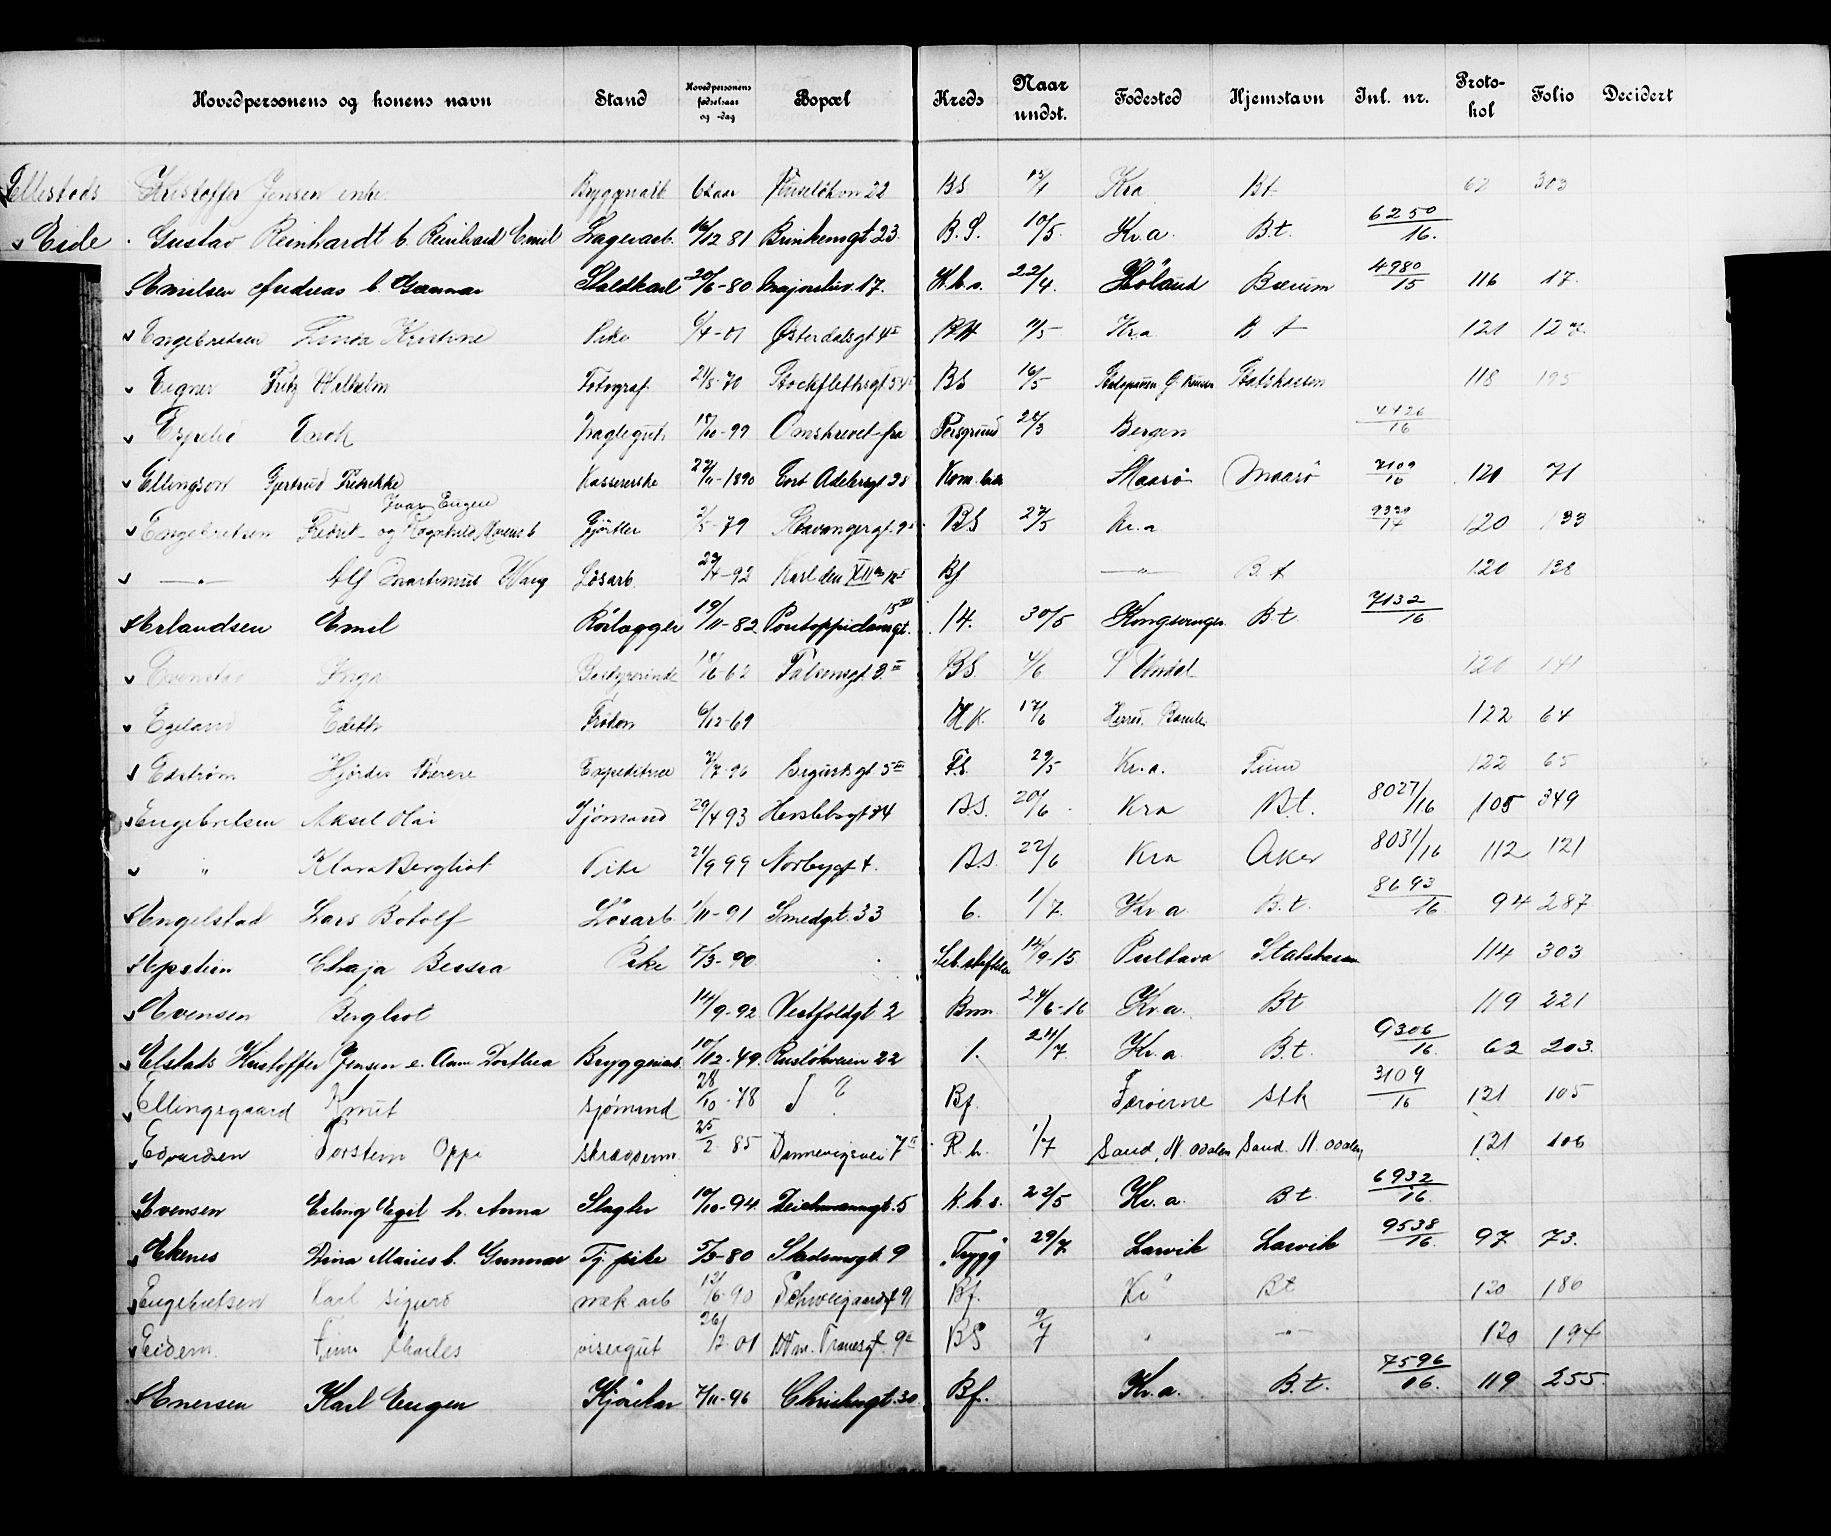 Hovedpersonens og konens navn Stand Hovedpersonens fødselsaar og -dag Bopæl Kreds Naar undst. Fødested Hjemstavn Inl. nr. Protokol Folio Decidert
Ellestads Kristoffer Jensen enke Bryggearb 62aar Ruseløkvn 22 BS 12/1 Kra Bt 62 303
Eide Gustav Reinhardt b. Reinhard Emil Lagerarb. 14/12 81 Brinkensgt 23 B.S. 10/5 Kr.a B.t. 6250/16
Emilsen Andreas b. Gunnar Staldkarl 20/6-80 Majorstuv. 17. K.h.s. 22/4 Høland Bærum 4980/15 116 17.
Engebretsen Kristine Pike 6/4-01 Østerdalsgt 4 II Kra Bt 121 127
Eigner Fritz Wilhelm Fotograf 21/5-70 Stockflethsgt 54 BS 16/5 Statskassen 118 195
Espelid 18/10-99 Omskrevet fra Porsgrund 28/3 Bergen 4426/16
Ellingsen Gjertrud Fredrikke Kassererske 27/11-1890 Cort Adelersgt 28 Maasø Maasø 7109/16 120 71
Ivar Eugen
Engebretsen Fredrik og Ragnhild Gjørtler 2/5-79 Stavangergt 9 BS 27/5 Kr.a 9330/17 120 133
—"— Alf Martinius Wang Løsarb. 27/4-92 Karl den XII's 18 Bf —"— B.t 120 138
Erlandsen Emil Rørlægger 19/11-82 Pontoppidansgt. 15 III 14. 30/5 Kongsvinger Bt 7132/16
Evenstad Inga Bestyrerinde 18/6-62 Falsensgt. 3 III BS. 4/6 120 141
Egeland Edith Frøken 6/12-69 17/6 122 64
Edstrøm Hjørdis Therese Expeditrice 2/7-96 Birgittesgt 5 III F.S. 29/5 Kr.a. 122 65
Engebretsen Aksel Olai Sjømand 29/4 93 Herslebsgt 34 B.S. 20/6 Kra Bt. 8027/16 105 349
" Klara Bergliot Pike 21/9 99 Norbygt 4. B.S. 22/6 Kra Aker 8031/16 112 121
Engelstad Lars Botolf Løsarb. 1/11-91 Smedgt. 33 6. 1/7. Kr.a. B.t. 8693/16 94 287
Epstein Chaja Bessra Pike 7/3-90 14/9-15 Pultava Statskassen 114 303
Evensen Bergliot 14/9-92 Vestfoldgt 2 Brm 24/6-16 Kr.a. Bt 119 221
Elstads Kristoffer Jensen e. Anne Dorthea Bryggearb. 10/12-49. Ruseløkveien 22 1. 24/7. Kr.a. B.t. 9306/16 62 203.
Ellingsgaard Knut sjømand 28/10-78 S ? Bf. Færøerne stk 3109/16 121 105
Edvardsen Torstein Oppi skræddern 25/2 85 Dannevigsvei 7 II R.h. 1/7 Sand, N. odalen Sand. N. odalen, 121 106
Evensen Erling Egil h. Anna Slagter 10/10-94. Deichmannsgt. 5 K.h.s. 22/5 Kr.a. Bt. 6932/16
Ekenes Dina Maries b. Gunnar Tj. pike 5/3-80 Stadensgt 9 „Trygg" 29/7. Larvik Larvik 9538/16. 97. 73.
Engebretsen Karl Sigurd mek arb 12/6-90 Schweigaardsgt 91 Bf. Kr Bt 120 180
Eidem Finn Charles visergut 26/12-01 Wm. Tranesgt. 9 BS 9/7 " —"— 120 194
Enersen Karl Eugen Kjørekar 7/11-96 Christiesgt. 30. Bf. Kr.a. B.t. 7596/16. 119 255.